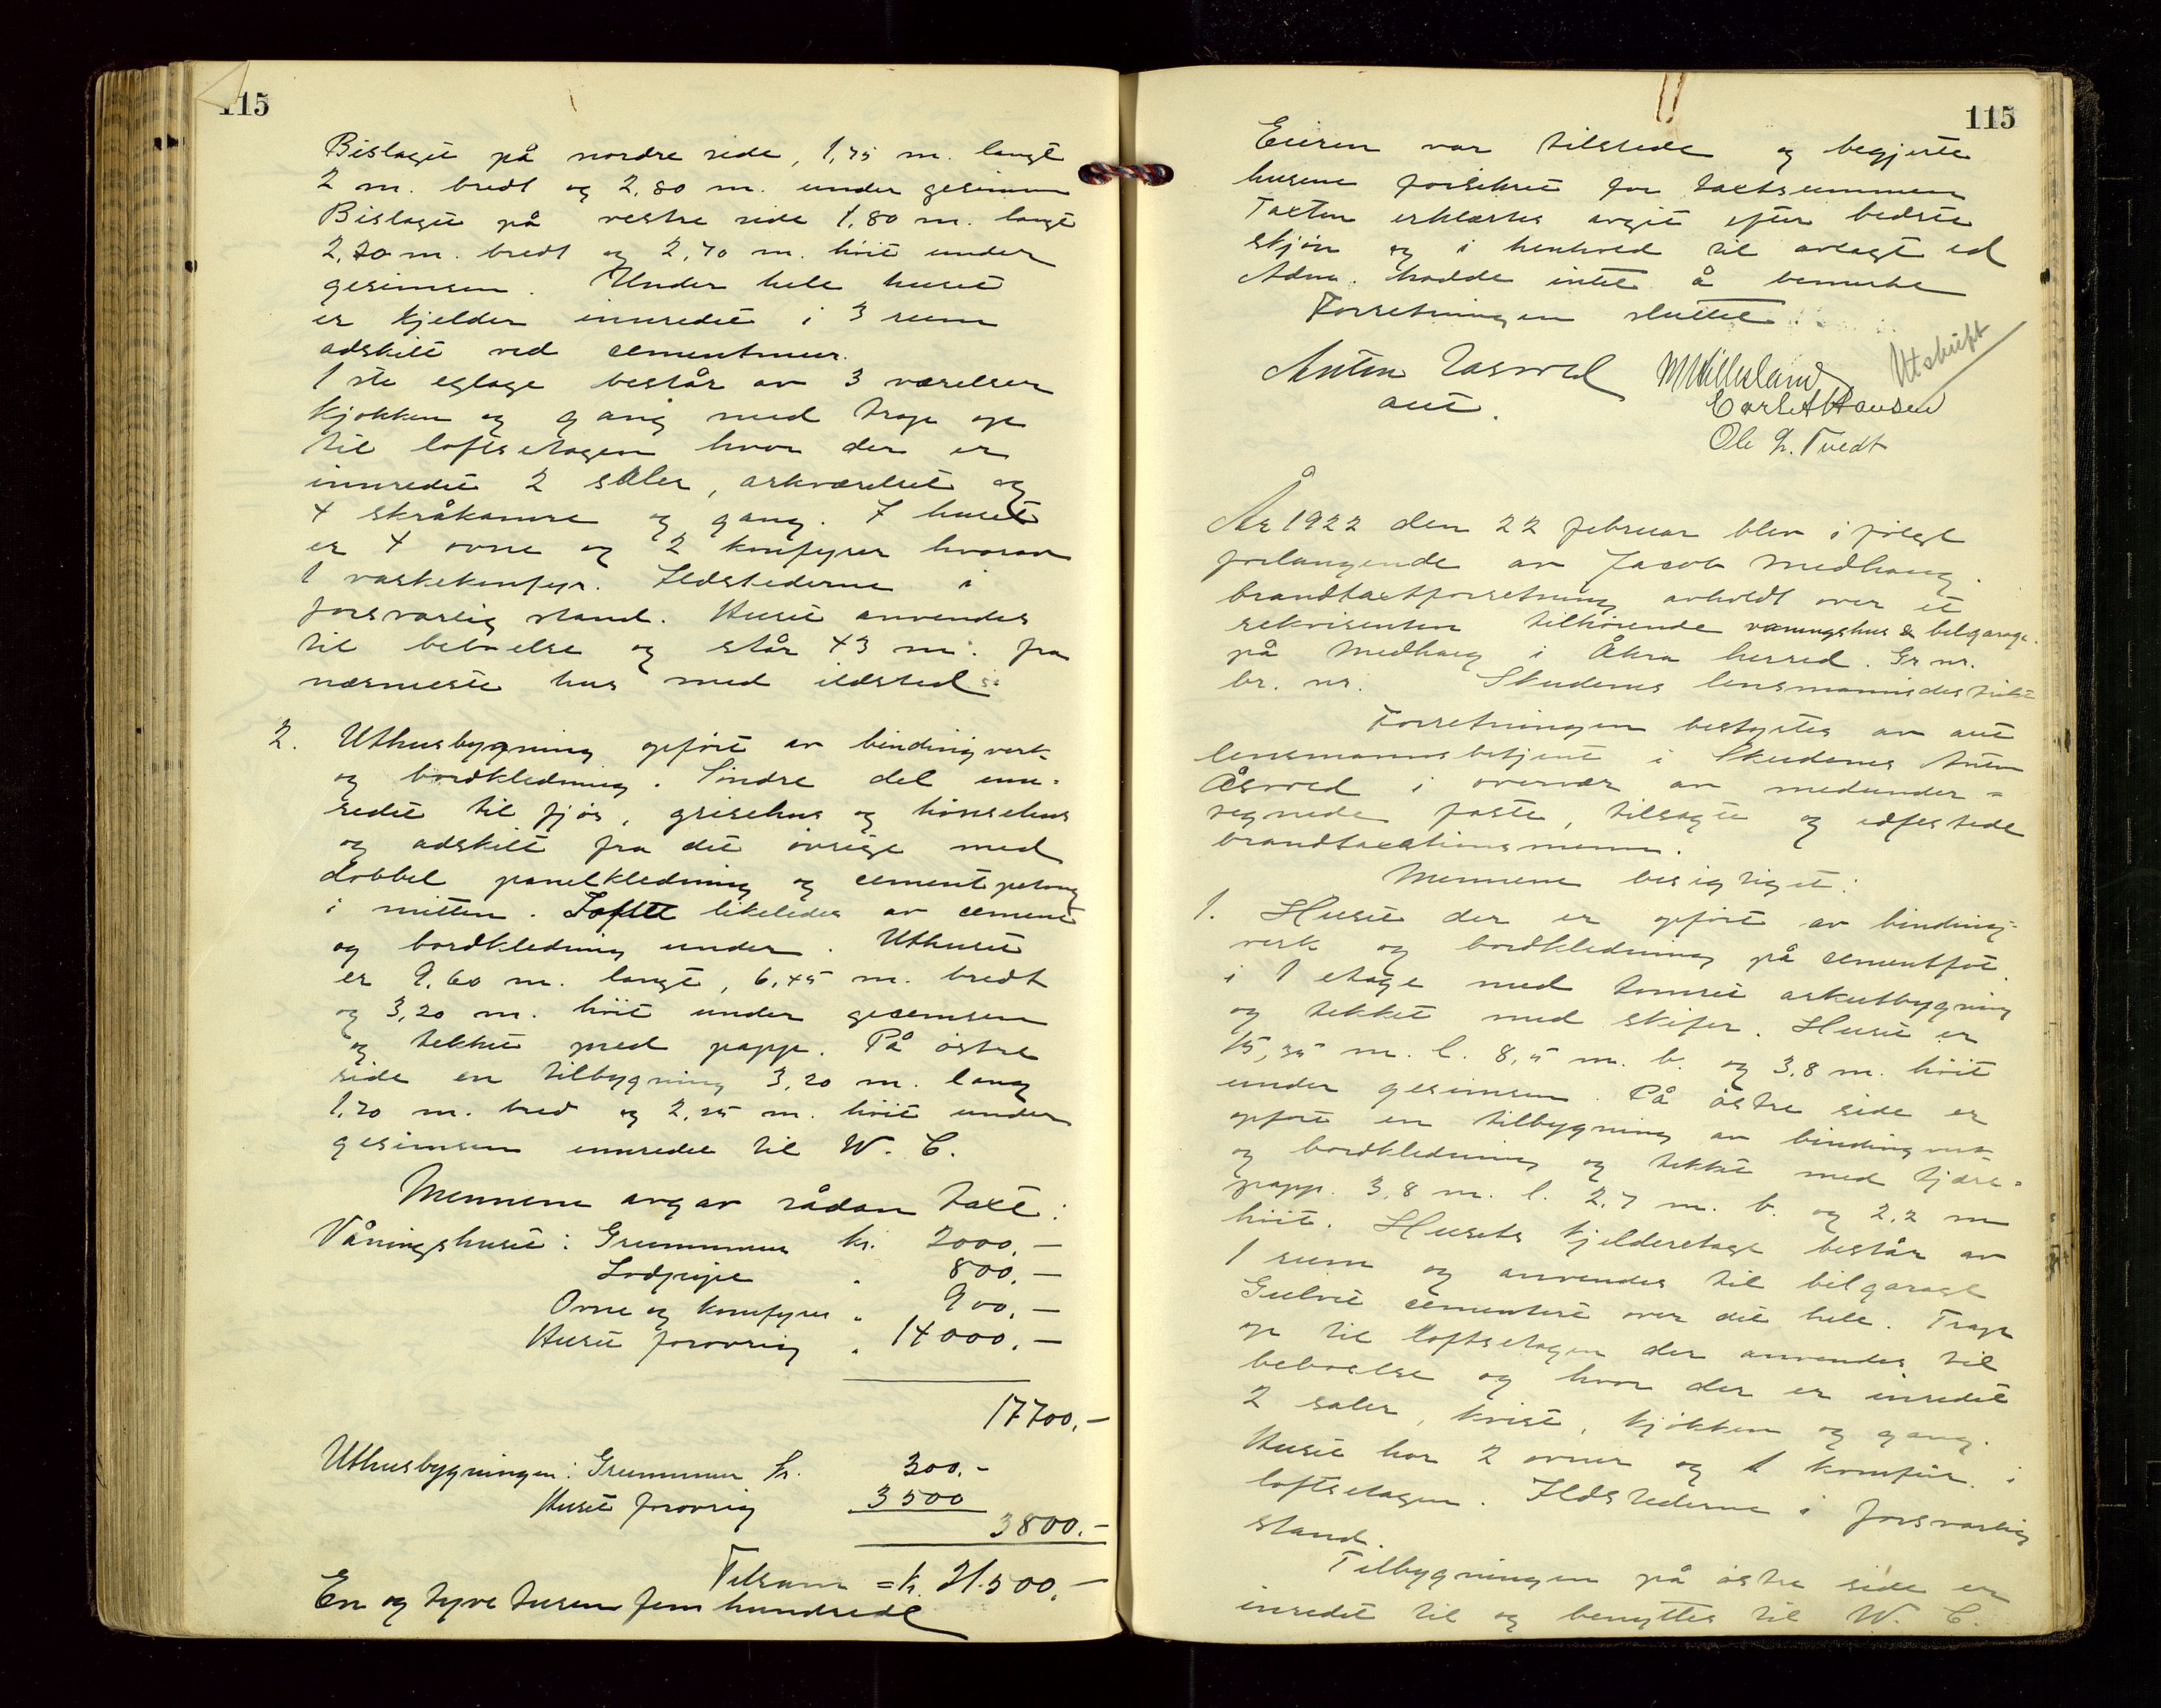 115
Bislaget på nordre side, 1,75 m. langt
2 m. bredt og 2,80 m. under gesimsen
Bislaget på vestre side 1,80 m. langt
2,20 m. bredt og 2,70 m. höit under
gesimsen. Under hele huset
er kjelder innredet i 3 rum
adskilt ved cementmur.
1 ste etage består av 3 værelser
kjökken og gang med trap op
til loftsetagen hvor der er
innredet 2 saler, arkværelset og
4 skråkamre og gang. I huset
er 4 ovne og 2 komfyrer hvorav
1 vaskekomfyr. Ildstederne i
forsvarlig stand. Huset anvendes
til beboelse og står 43 m. fra
nærmeste hus med ildsted.
2. Uthusbygning opfört av bindingverk
og bordkledning. Söndre del inn-
redet til fjös, grisehus og hönsehus
og adskilt fra det övrige med
dobbel panelkledning og cementpetong
i mitten. Loftet likeledes av cement
og bordkledning under. Uthuset
er 9,60 m. langt, 6,45 m. bredt
og 3,20 m. höit under gesimsen
og tekket med papp. På östre
side en tilbygning 3,20 m. lang
1,20 m. bred og 2,25 m. höit under
gesimsen innredet til W. C.
Mennene avgav sådan taxt:
Våningshuset: Grunnmur kr. 2000,-
Lodpipe " 800,-
Ovne og komfyrer " 900,-
Huset forövrig " 14000,-
17700,-
Uthusbygningen: Grunnmur kr. 300,-
Huset forövrig 3500
3800,-
Tilsam = kr. 21.500,-
En og tyve tusen fem hundrede
115
Eieren var tilstede og begjerte
husene forsikret for taxtsummen
Taxten erklærtes avgit efter bedste
skjön og i henhold til avlagt ed
Adm. hadde intet å bemerke
Forretningen sluttet.
Utskrift
Anton Åsvoll
aut.
Carl A Hansen
Ole L. Tvedt
År 1922 den 22 februar blev i fölge
forlangende av Jacob Medhaug
brandtaxtforretning avholdt over et
rekvirenten tilhörende vaaningshus & bilgarage
på Medhaug i Åkra herred. Gr nr.
br. nr. Skudenes lensmannsdistrikt
Forretningen bestyrtes av aut
lensmannsbetjent i Skudenes Anton
Åsvoll i overvær av medunder-
tegnede faste, tilsagte og edfestede
brandtaxationsmenn.
Mennene besigtiget:
1. Huset der er opfört av binding-
verk og bordkledning på cementfot
i 1 etage med tömret arkutbygning
og tekket med skifer. Huset er
15,35 m. l. 8,5 m. b. og 3,8 m. höit
under gesimsen. På östre side er
opfört en tilbygning av bindingverk
og bordkledning og tekket med tjære-
papp. 3,8 m. l. 2,7 m. b. og 2,2 m
höit. Husets kjelderetage består av
1 rum og anvendes til bilgarage
Gulvet cementert over det hele. Trap
op til loftsetagen der anvendes til
beboelse og hvor der er inredet
2 saler, kvist, kjökken og gang.
Huset har 2 ovner og 1 komfür i
loftsetagen. Ildstederne i forsvarlig
stand.
Tilbygningen på östre side er
inredet til og benyttes til W. C.